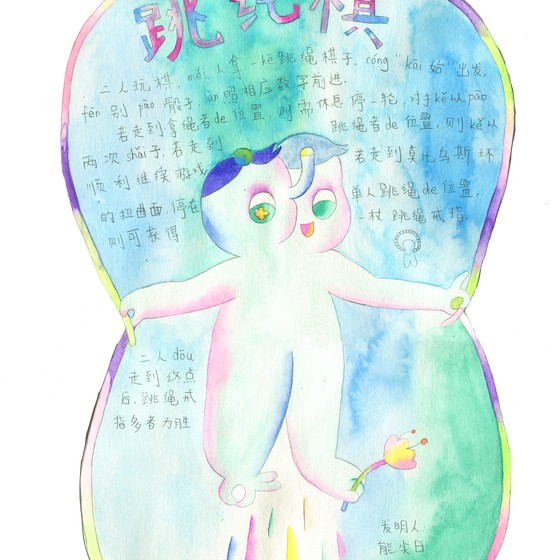 跳绳棋
二人玩棋, měi人拿一kē跳绳棋子, cóng "kāi始"出发,
fēn别pāo骰子, àn照相应数字前进.
若走到拿绳者de位置, 则需休息停一轮, 对手kě以pāo
两次shǎi子, 若走到跳绳者de位置, 则kě以
顺利继续游戏. 若走到莫比乌斯环
的扭曲面, 停在单人跳绳de位置,
则可获得一枚跳绳戒指.
二人dōu
走到终点
后, 跳绳戒
指多者为胜
发明人
熊尖日